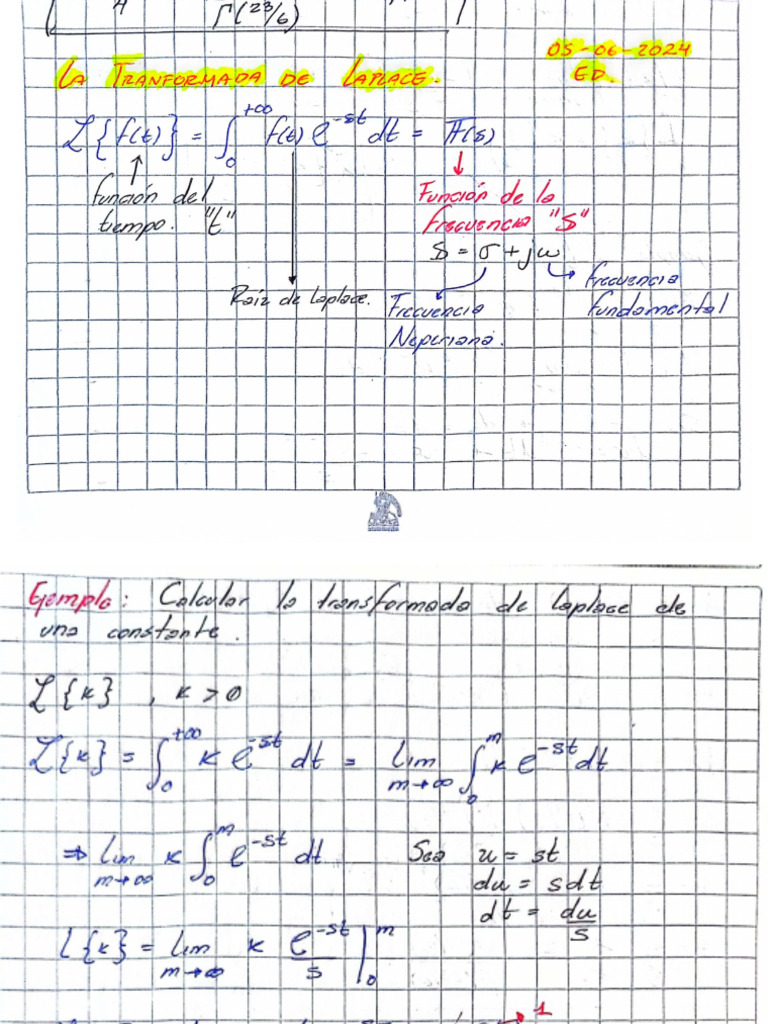 Γ(23/6)
LA TRANFORMADA DE LAPLACE.
05-06-2024
ED.
ℒ{f(t)} = ∫₀^{+∞} f(t) e^{-st} dt = F(s)
función del
tiempo. "t"
Raíz de Laplace.
Función de la
frecuencia "S"
s = σ + jω
Frecuencia
Neperiana.
frecuencia
fundamental
Ejemplo: Calcular la transformada de Laplace de
una constante.
ℒ{k} , k > 0
ℒ{k} = ∫₀^{+∞} k e^{-st} dt = lim_{m→∞} ∫₀^m k e^{-st} dt
⇒ lim_{m→∞} k ∫₀^m e^{-st} dt
Sea u = st
du = sdt
dt = du/s
ℒ{k} = lim_{m→∞} k e^{-st}/s |₀^m
1